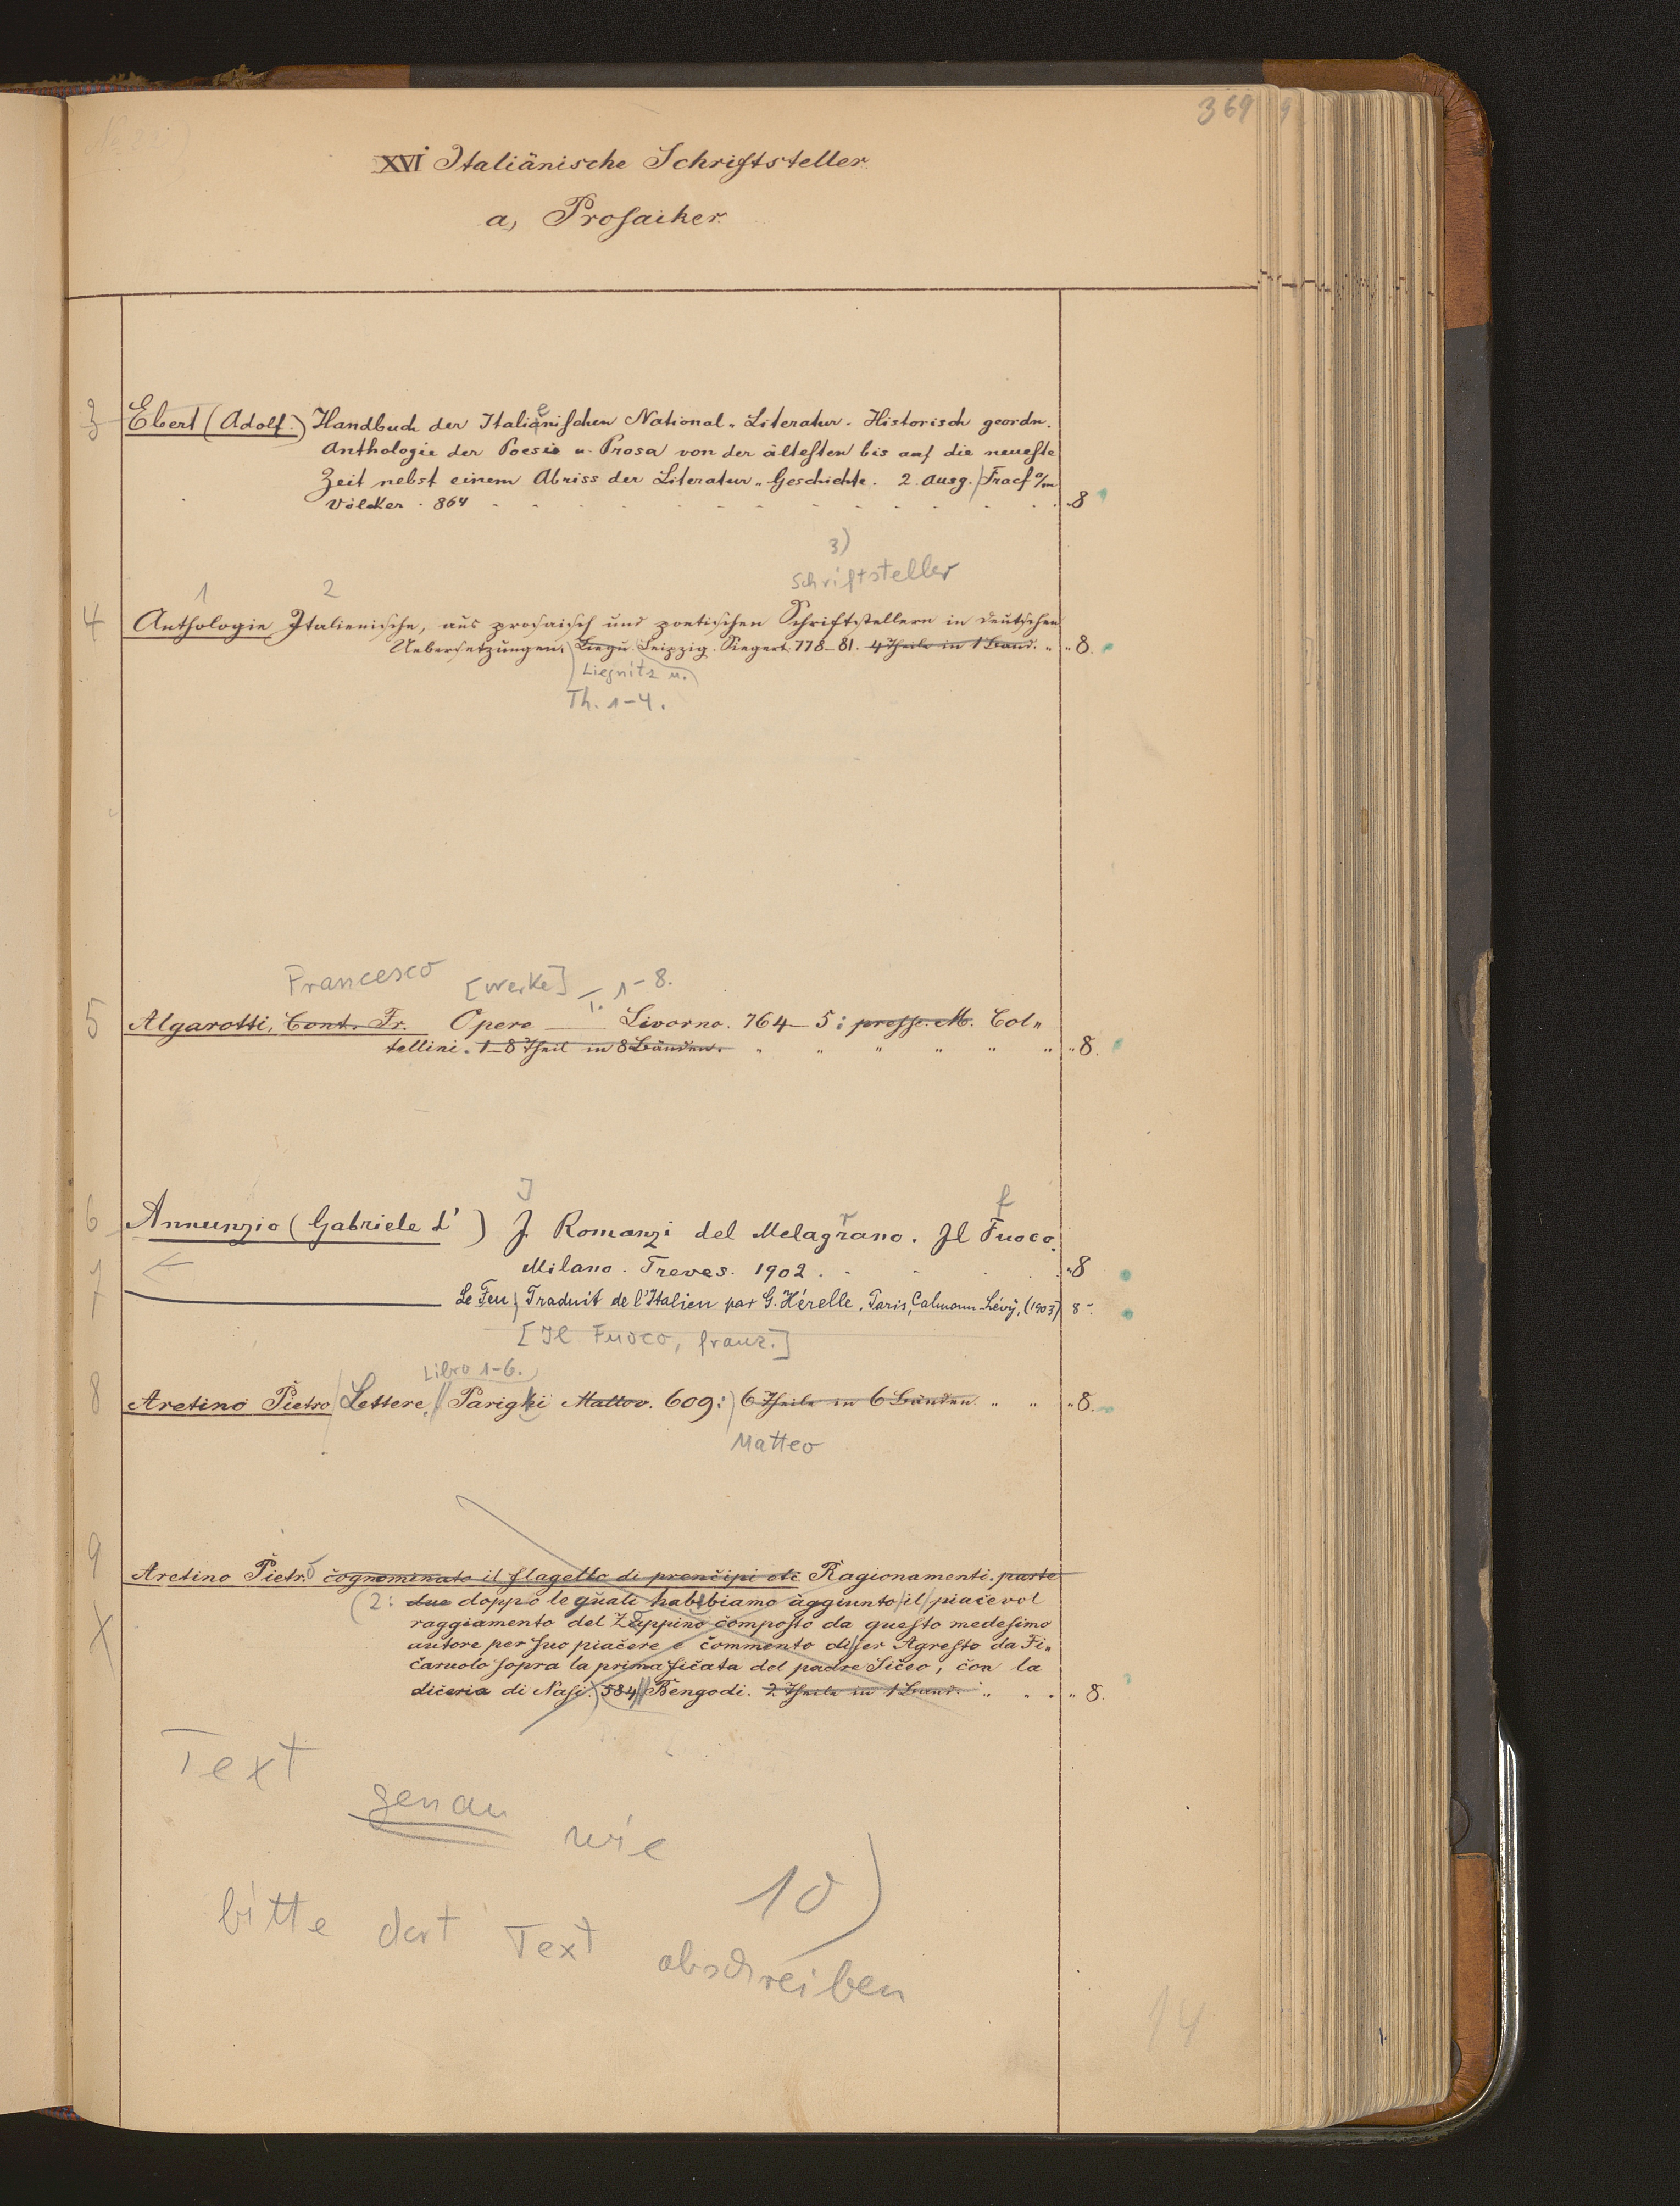 369 9
XVI Italiänische Schriftsteller.
a, Prosaiker.
3 Ebert (Adolf.) Handbuch der Italiänischen National-Literatur. Historisch geordn.
e
Anthologie der Poesie u. Prosa von der ältesten bis auf die neueste
Zeit nebst einem Abriss der Literatur-Geschichte. 2. Ausg. Fracf o/m
Völcker. 864 8
3)
1 2 Schriftsteller
4 Anthologie Italienische, aus prosaisch und poetischen Schriftstellern in deutschen
Uebersetzungen. Liegn. Leipzig. Siegert. 778–81. 4 Theile in 1 Band. " " 8.
Liegnitz u.
Th. 1–4.
Francesco [Werke] T. 1–8.
5 Algarotti, Cont. Fr. Opere Livorno. 764–5: presso M. Col„
tellini. 1–8 Theil in 8 Bänden. " " " " " " " 8.
I f
6 Annunzio (Gabriele d') J Romanzi del Melagrano. Jl Fuoco.
r
Milano. Treves. 1902. "8
7 Le Feu, Traduit de l'Italien par G. Hérelle. Paris, Calmann-Lévy, (1903) 8-
[Il Fuoco, franz.]
Libro 1–6.
8 Aretino Pietro Lettere, Parighi Matteo. 609: 6 Theile in 6 Bänden. " " "8.
Matteo
9 Aretino Pietro cognominato il flagello di prencipi etc Ragionamenti. parte
(2: due doppo le quali habbiamo aggiunto il piacevol
X raggiamento del Zoppino composto da questo medesimo
autore per suo piacere e commento di ser Agresto da Fi„
caruolo sopra la prima ficata del padre Siceo, con la
diceria di Nasi. 584 Bengodi. 2 Theile in 1 Band. " . . " 8.
Text
genau wie
10)
bitte dort Text abschreiben
14